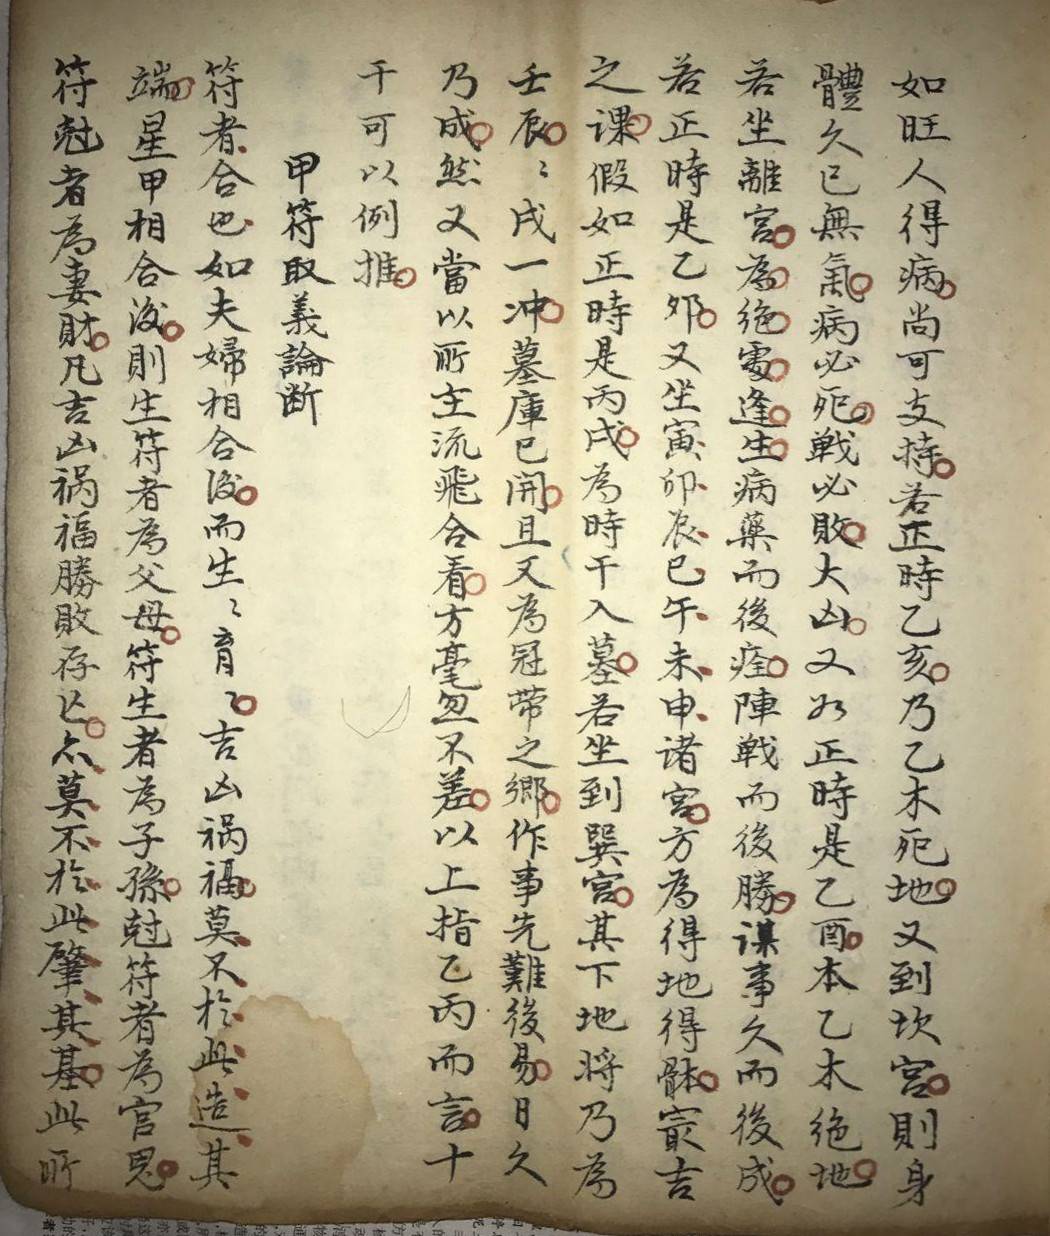 如旺人得病尚可支持若正時乙亥乃乙木死地又到坎宮則身
體久已無氣病必死戰必敗大凶又如正時是乙酉本乙木绝地
若坐離宮為绝處逢生病藥而後痊陣戰而後勝謀事久而後成
若正時是乙夘又坐寅卯辰巳午未申诸宮方為得地得躰㝡吉
之課假如正時是丙戌為時干入墓若坐到巽宮其下地将乃為
壬辰辰戌一冲墓庫已開且又為冠帶之鄉作事先難後易日久
乃成然又當以所主流飛合看方毫忽不差以上指乙丙而言十
干可以例推
甲符取義論断
符者合也如夫婦相合後而生〻育〻吉凶禍福莫不於此造其
端星甲相合後則生符者為父母符生者為子孫尅符者為官鬼
符尅者為妻財凡吉凶祸福勝敗存亡亦莫不於此肇其基此所